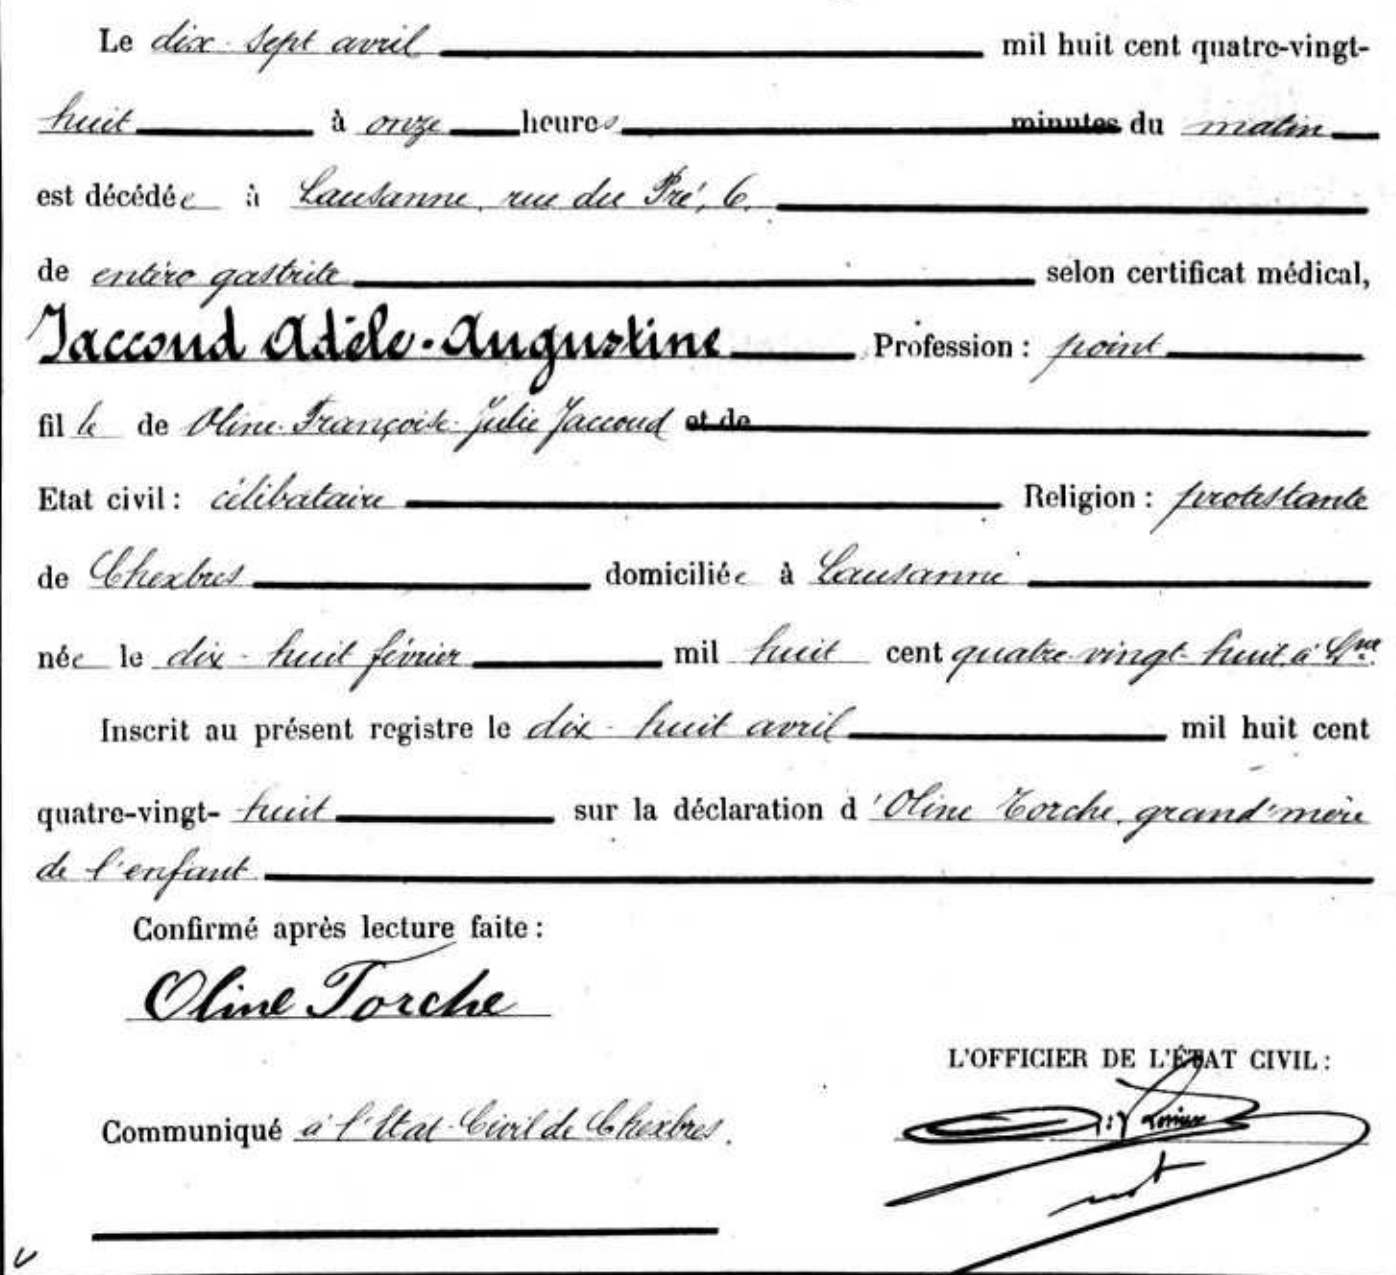 Le dix-sept avril mil huit cent quatre-vingt-
huit à onze heures minutes du matin
est décédée à Lausanne, rue du Pré, 6.
de entéro gastrite selon certificat médical,
Jaccoud Adèle-Augustine Profession : point
fille de Oline-Françoise-Julie Jaccoud et de
Etat civil : célibataire Religion : protestante
de Chexbres domiciliée à Lausanne
née le dix-huit février mil huit cent quatre-vingt-huit à Lsne
Inscrit au présent registre le dix-huit avril mil huit cent
quatre-vingt-huit sur la déclaration d'Oline Torche, grand'mère
de l'enfant
Confirmé après lecture faite :
Oline Torche
L'OFFICIER DE L'ÉTAT CIVIL :
Communiqué à l'Etat-Civil de Chexbres.
not